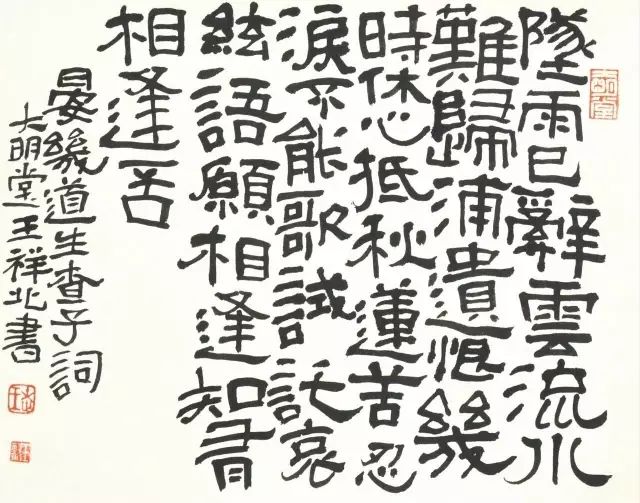 墜雨已辭雲流水
難歸浦遺恨幾
時休心抵秋蓮苦忍
淚不能歌試託哀
絃語願相逢知有
相逢否
晏幾道生查子詞
大明堂王祥北書